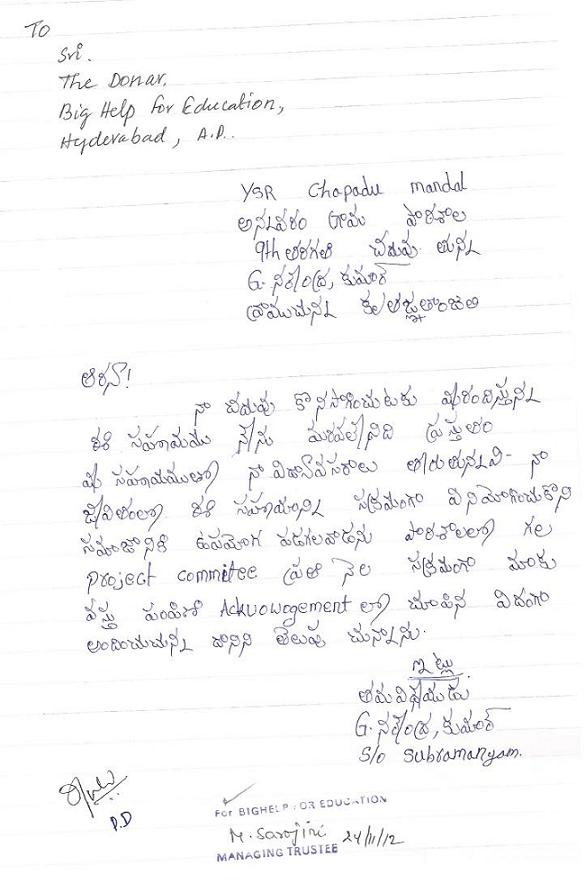 TO
Sri.
The Donar.
Big Help for Education,
Hyderabad, A.P.
YSR Chapadu mandal
అన్నవరం గ్రామ పాఠశాల
9th తరగతి చదువు తున్న
G. నరేంద్ర, కుమార్
వ్రాముచున్న కృతజ్ఞతాంజలి
ఆర్యా!
నా చదువు కొనసాగించుటకు మీరందిస్తున్న
ఈ సహాయము నేను మరవలేనిది ప్రస్తుతం
మీ సహాయముతో నా విద్యావసరాలు తీరుతున్నవి- నా
జీవితంలో ఈ సహాయాన్ని సక్రమంగా వినియోగించుకొని
సమాజానికి ఉపయోగ పడగలవాడను పాఠశాలలో గల
project committee ప్రతి నెల సక్రమంగా మాకు
వస్తు పంపిణీ Ackuowagement లో చూపిన విదంగా
అందించుచున్న దానిని తెలుపు చున్నాను.
ఇట్లు
తమ విధేయుడు
G. నరేంద్ర, కుమార్
S/o Subramanyam.
P.D
For BIGHELP FOR EDUCATION
M. Sarojini 24/11/12
MANAGING TRUSTEE